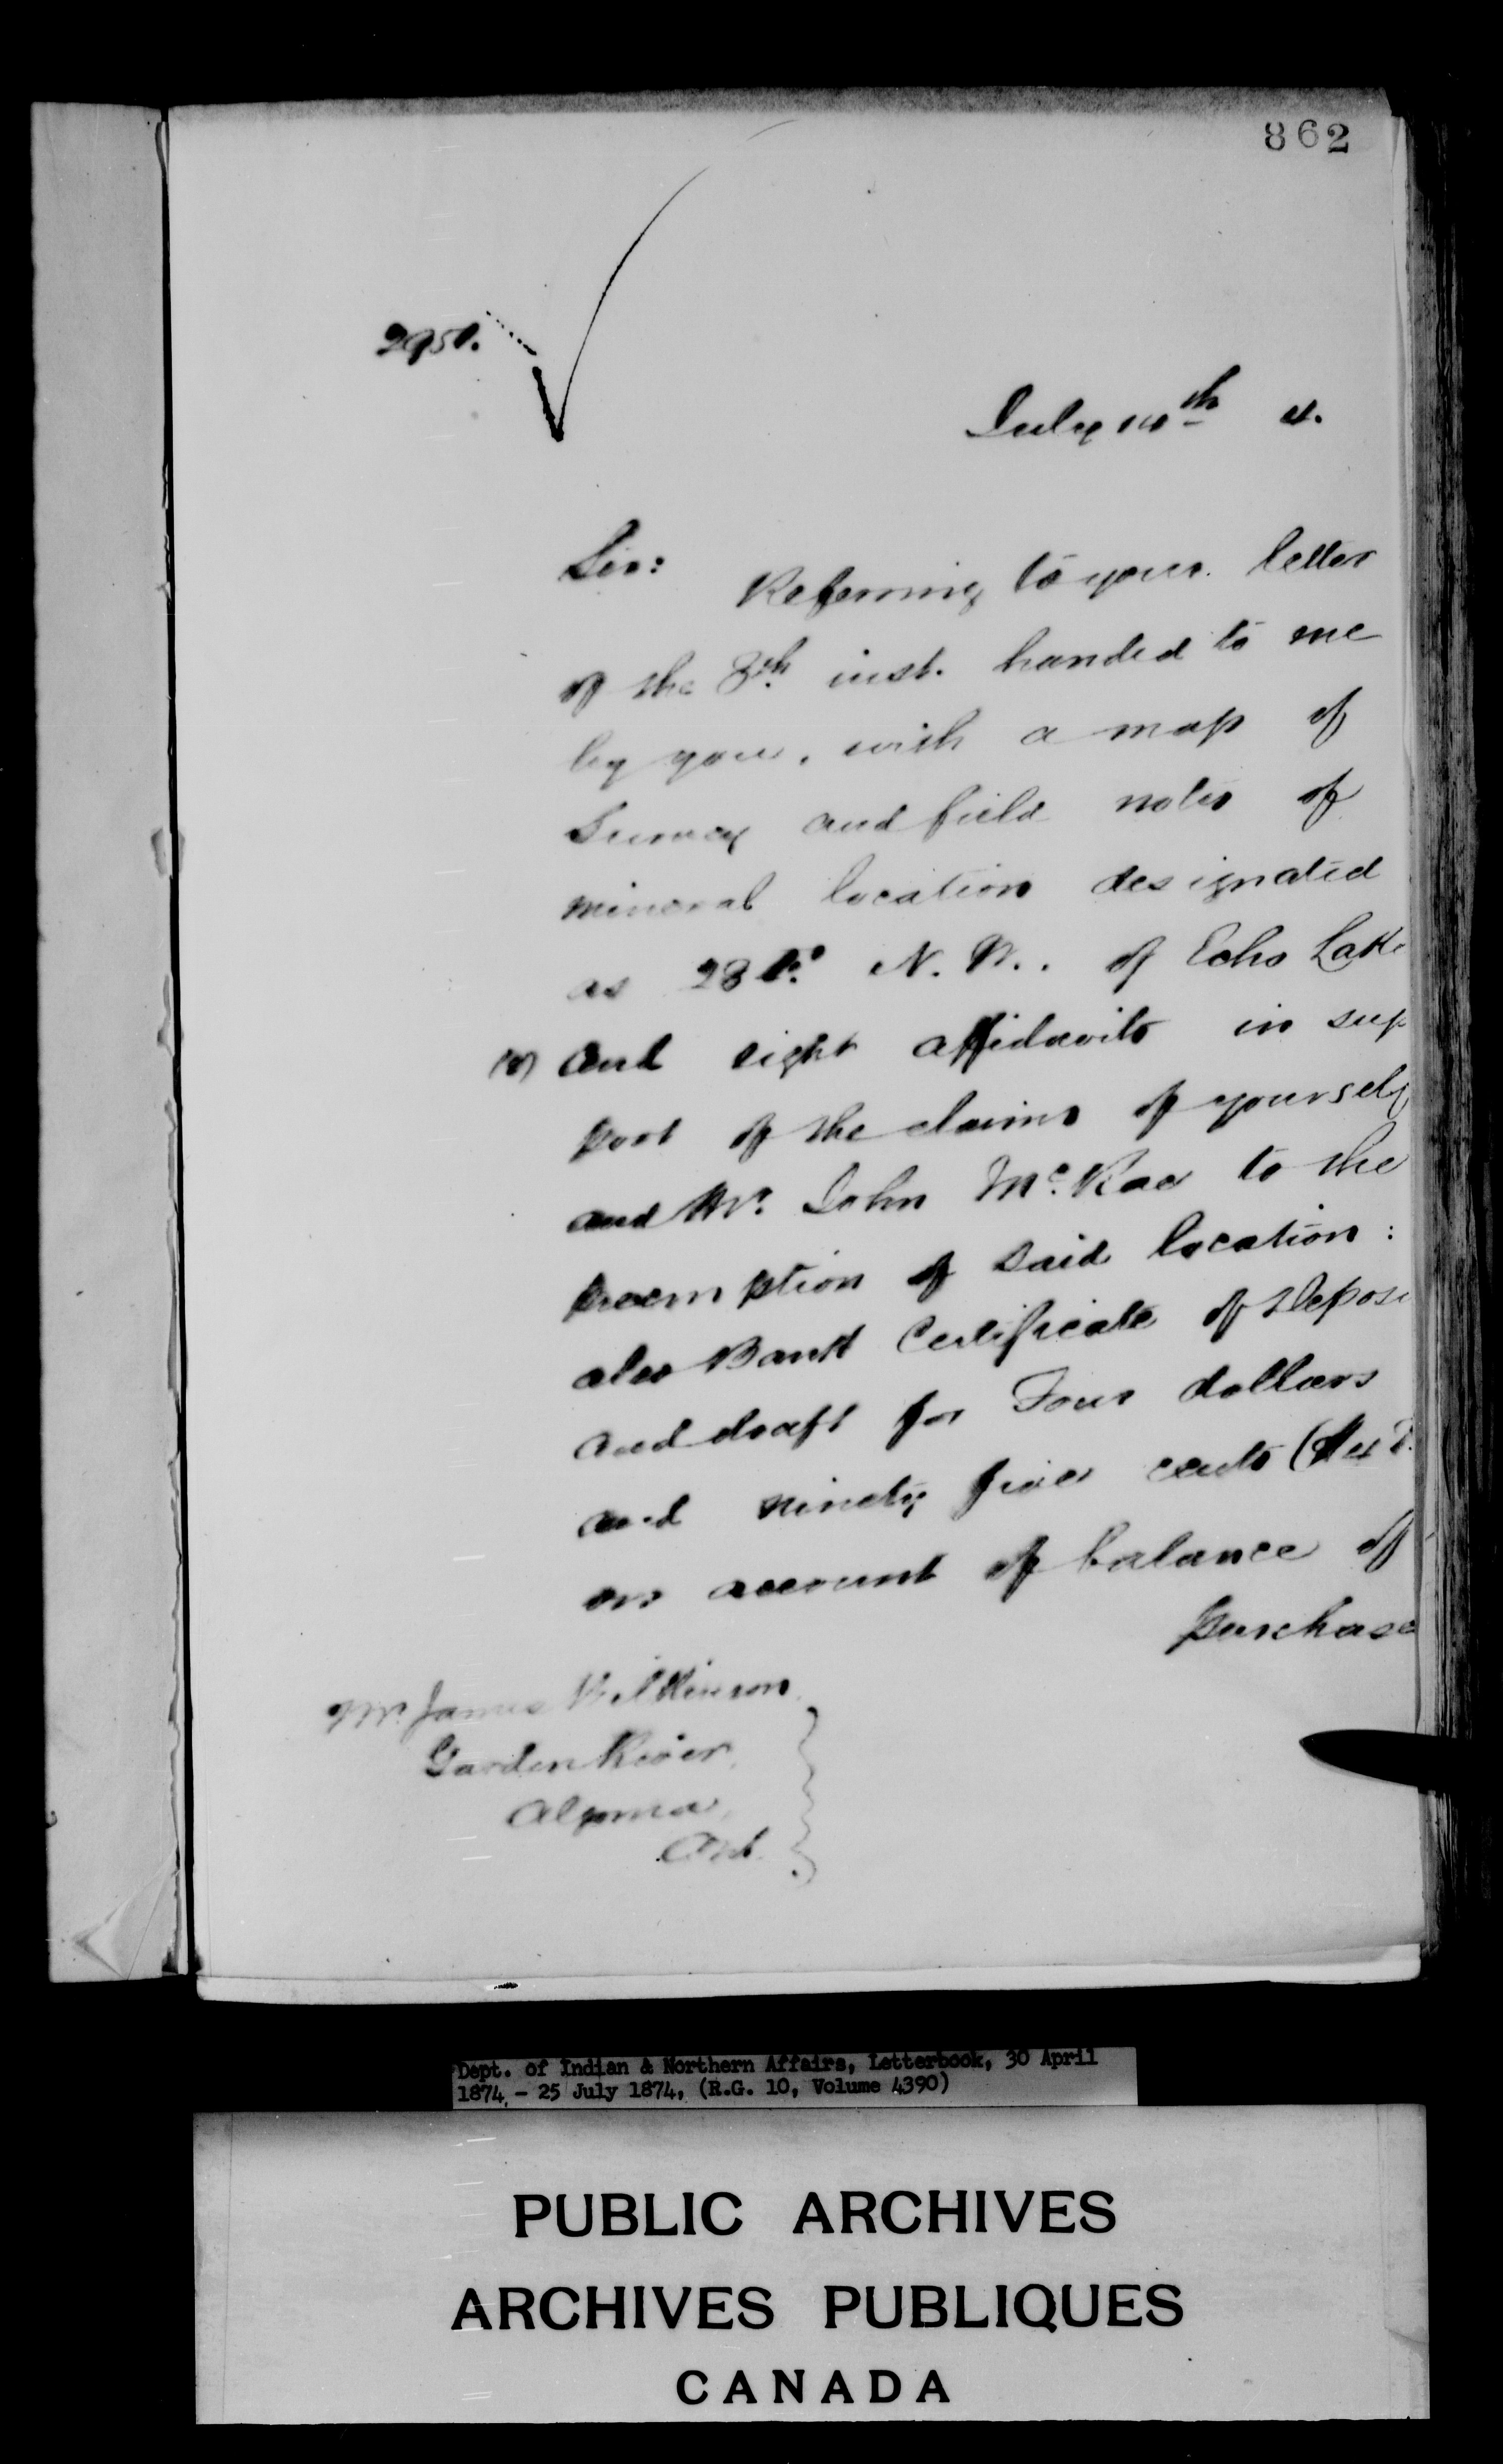 862
2951.
July 10th 4.
Sir:
Referring to your letter
of the 8th inst. handed to me
by you, with a map of
Survey and field notes of
mineral location designated
as 28 N. W. of Echo Lake
(8) and eight affidavits in sup
port of the claims of yourself
and Mr. John McRae to the
preemption of said location:
also Bank Certificate of deposi
and draft for Four dollars
and ninety five cents
on account of balance of
purchase
Mr. James Wilkinson
Garden River,
Algoma,
Ont.
Dept. of Indian & Northern Affairs, Letterbook, 30 April
1874, - 25 July 1874, (R.G. 10, Volume 4390)
PUBLIC ARCHIVES
ARCHIVES PUBLIQUES
CANADA